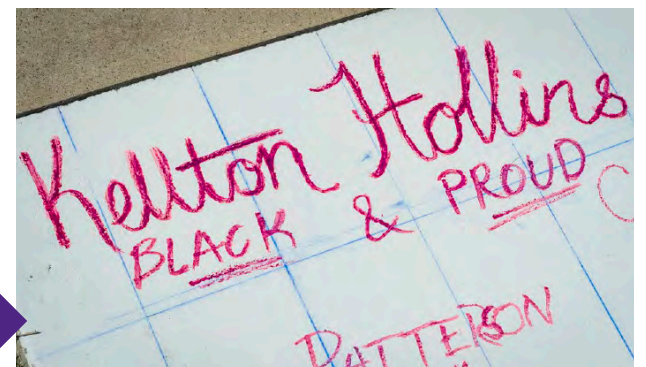 Kellton Hollins
BLACK & PROUD
PATTERSON